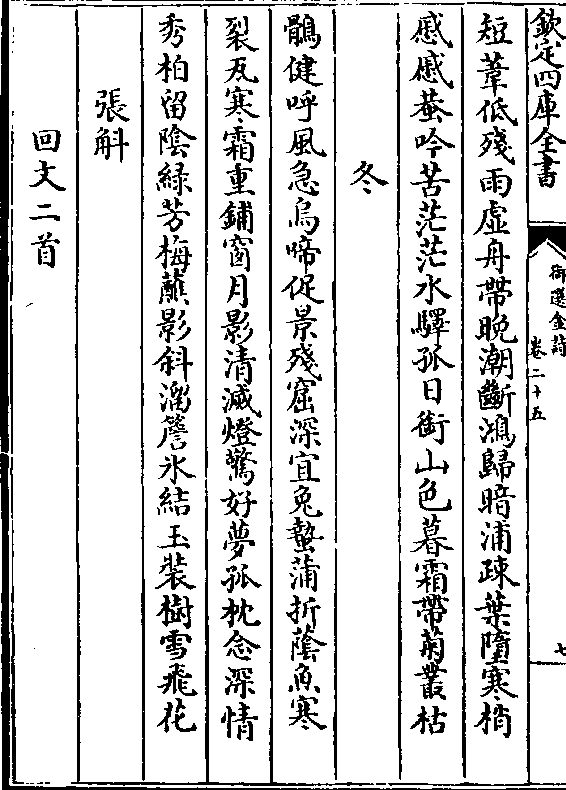 欽定四庫全書
御選金詩
卷二十五
七
短葦低殘雨虛舟帶晚潮斷鴻歸暗浦疎葉墮寒梢
慼慼蛩吟苦茫茫水驛孤日銜山色暮霜帶菊叢枯
冬
鶻健呼風急烏啼促景殘窟深宜兔蟄蒲折蔭魚寒
裂瓦寒霜重鋪窗月影清減燈驚好夢孤枕念深情
秀柏留陰綠芳梅蘸影斜溜簷氷結玉裝樹雪飛花
張斛
回文二首